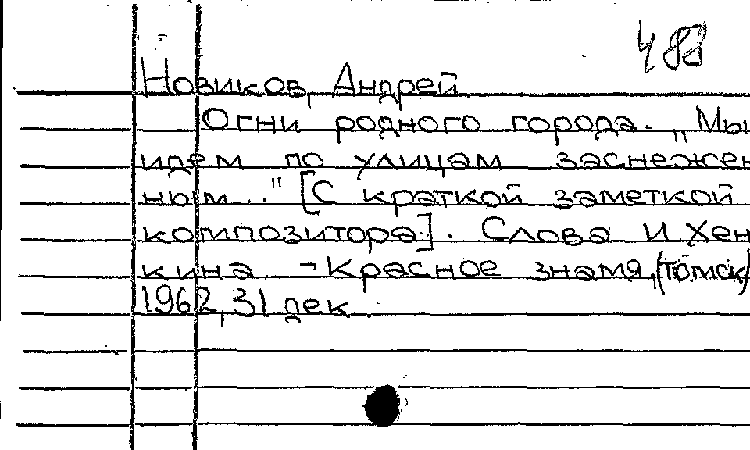 488
Новиков, Андрей
Огни родного города. „Мы
идем по улицам заснежен
ным.." [С краткой заметкой
композитора]. Слова И Хен
кина - Красное знамя, (Томск)
1962, 31 дек.